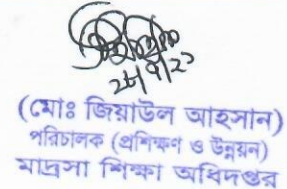 ২৮/৭/২১
(মোঃ জিয়াউল আহসান)
পরিচালক (প্রশিক্ষণ ও উন্নয়ন)
মাদ্রাসা শিক্ষা অধিদপ্তর